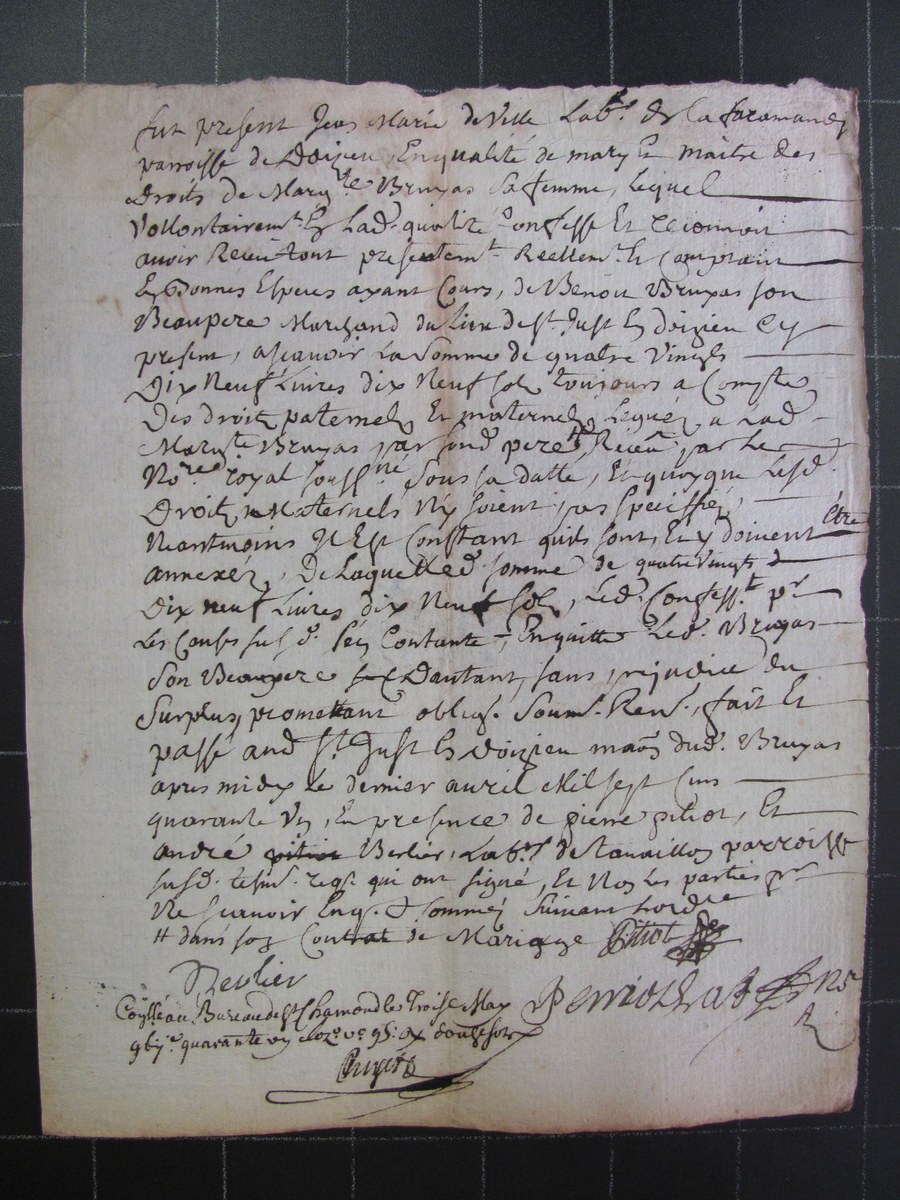 fut present Jean Marie deville Lab.r de la faramandy
parroisse de Doizieu, En qualité de mary et maitre des
droits de Marg.te Bruyas sa femme, Lequel
vollontairem.t En Lad. qualité Confesse Et reconnoit
avoir Receu tout présentem.t Reellem.t Et Comptant
En Bonnes Especes ayant Cours, de Benoit Bruyas son
Beaupere Marchand du Lieu de St. Just En doizieu Cy
present, ascavoir La Somme de quatre vingts
Dix Neuf Livres dix Neuf sols, toujours a Compte
Des droits paternels Et maternels Legués a Lad.
Marg.te Bruyas par sond. pere # Receu par Le
No.re royal souss.né Sous sa datte, Et quoyque Lesd.
Droits Maternels N'y soient pas speciffiés,
Neantmoins Il Est Constant quils sont, Et y doivent être
annexéz, De Laquelle d. somme de quatre vingts
Dix neuf Livres dix Neuf sols, Led. Confess.t p.r
Les Causes susd. Sen Contante, En quitte Led. Bruyas
Son Beaupere Dautant, sans prejudice du
Surplus, promettant oblig. Soum. Ren., fait Et
passé aud. St. Just En doizieu maôn dud. Bruyas
apres midy Le dernier avril Mil sept Cens
quarante Un, En presence de pierre pitiot, Et
andré pitiot Berlier, Lab.rs de parroisse
susd. tesm. req. qui ont signé, Et Non Les parties p.r
Ne scavoir Enq. Et sommés Suivant Lordre
# dans son Contrat de Mariage Pitiot
Berlier
Collé au Bureau de St. Chamond le Troise May
quarante un douze sols